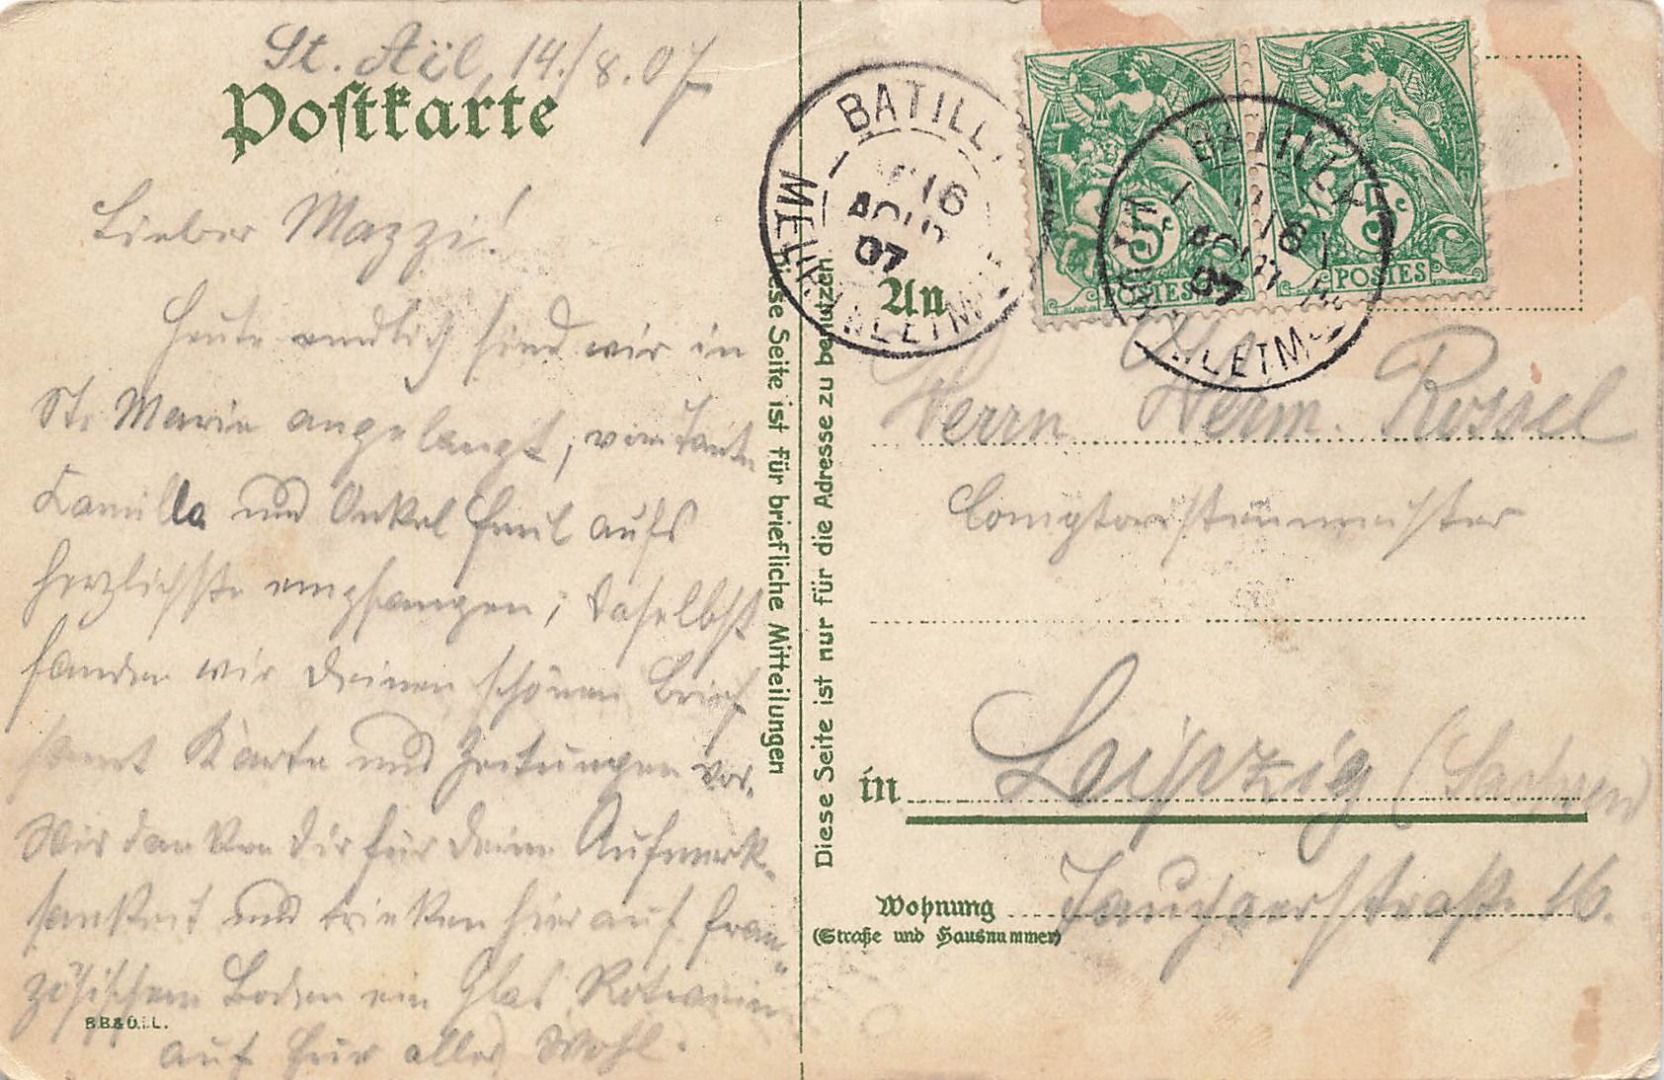 St. Aïl, 14./8.07
Postkarte
Lieber Mazzi!
Heute endlich sind wir in
St. Marie angelangt, von Tante
Kamilla und Onkel Emil aufs
herzlichste empfangen; daselbst
fanden wir Deinen schönen Brief
samt Karte und Zeitungen vor.
Wir danken Dir für Deine Aufmerk-
samkeit und trinken hier auf fran-
zösischem Boden ein Glas Rotwein
auf Euer aller Wohl.
B.B.& O.i.L.
Diese Seite ist für briefliche Mitteilungen
Diese Seite ist nur für die Adresse zu benutzen
BATILLY
16
AOUT
07
MEURTHE-ET-MLLE
5c
POSTES
BATILLY
16
AOUT
07
5c
POSTES
An
Herrn Herm. Rossel
in Leipzig (Sachsen)
Wohnung Tauchaerstraße 16.
(Straße und Hausnummer)